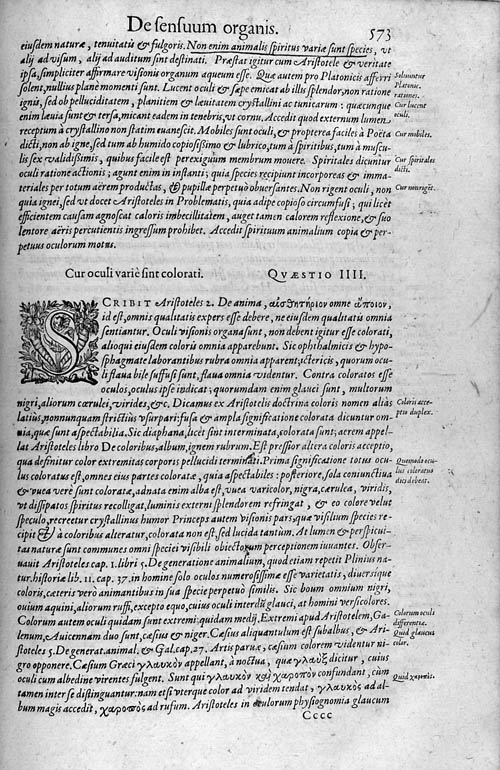 De sensuum organis.
573
eiusdem naturæ, tenuitatis & fulgoris. Non enim animalis spiritus variæ sunt species, vt
alij ad visum, alij ad auditum sint destinati. Præstat igitur cum Aristotele & veritate
ipsa, simpliciter affirmare visionis organum aqueum esse. Quæ autem pro Platonicis afferri
solent, nullius plane momenti sunt. Lucent oculi & sæpe emicat ab illis splendor, non ratione
ignis, sed ob pelluciditatem, planitiem & leuitatem crystallini ac tunicarum: quæcunque
enim leuia sunt & tersa, micant eadem in tenebris, vt cornu. Accedit quod externum lumen
receptum à crystallino non statim euanescit. Mobiles sunt oculi, & propterea faciles à Poëta
dicti, non ab igne, sed tum ab humido copiosissimo & lubrico, tum à spiritibus, tum à muscu-
lis sex validissimis, quibus facile est perexiguum membrum mouere. Spiritales dicuntur
oculi ratione actionis; agunt enim in instanti; quia species recipiunt incorporeas & imma-
teriales per totum aërem productas, & pupillæ perpetuò obuersantes. Non rigent oculi, non
quia ignei, sed vt docet Aristoteles in Problematis, quia adipe copioso circumfusi; qui licet
efficientem causam agnoscat caloris imbecillitatem, auget tamen calorem reflexione, & suo
lentore aëris percutientis ingressum prohibet. Accedit spirituum animalium copia & per-
petuus oculorum motus.
Soluuntur
Platonic.
rationes.
Cur lucent
oculi.
Cur mobiles.
Cur spiritales
dicti.
Cur nõ rigẽt.
Cur oculi variè sint colorati. QVÆSTIO IIII.
SCRIBIT Aristoteles 2. De anima, αἰσθητήριον omne ἄποιον,
id est, omnis qualitatis expers esse debere, ne eiusdem qualitatis omnia
sentiantur. Oculi visionis organa sunt, non debent igitur esse colorati,
alioqui eiusdem coloris omnia apparebunt. Sic ophthalmicis & hypo-
sphagmate laborantibus rubra omnia apparent; ictericis, quorum ocu-
li flaua bile suffusi sunt, flaua omnia videntur. Contra coloratos esse
oculos, oculus ipse indicat; quorumdam enim glauci sunt, multorum
nigri, aliorum cærulei, virides, &c. Dicamus ex Aristotelis doctrina coloris nomen aliàs
latiùs, nonnunquam strictiùs vsurpari: fusa & ampla significatione colorata dicuntur om-
nia, quæ sunt aspectabilia. Sic diaphana, licèt sint interminata, colorata sunt; aërem appel-
lat Aristoteles libro De coloribus, album, ignem rubrum. Est pressior altera coloris acceptio,
qua definitur color extremitas corporis pellucidi terminati. Prima significatione totus ocu-
lus coloratus est, omnes eius partes coloratæ, quia aspectabiles: posteriore, sola coniunctiua
& vuea verè sunt coloratæ, adnata enim alba est, vuea varicolor, nigra, cærulea, viridis,
vt dissipatos spiritus recolligat, luminis externi splendorem refringat, & eo colore velut
speculo, recreetur crystallinus humor Princeps autem visionis pars, quæ visilium species re-
cipit & à coloribus alteratur, colorata non est, sed lucida tantùm. At lumen & perspicui-
tas naturæ sunt communes omni speciei visibili obiectorum perceptionem iuuantes. Obser-
uauit Aristoteles cap. 1. libri 5. De generatione animalium, quod etiam repetit Plinius na-
tur. historiæ lib. 11. cap. 37. in homine solo oculos numerosissimæ esse varietatis, diuersique
coloris, cæteris verò animantibus in sua specie perpetuò similis. Sic boum omnium nigri,
ouium aquini, aliorum ruffi, excepto equo, cuius oculi interdũ glauci, at homini versicolores.
Colorum autem oculi quidam sunt extremi; quidam medij. Extremi apud Aristotelem, Ga-
lenum, Auicennam duo sunt, cæsius & niger. Cæsius aliquantulum est subalbus, & Ari-
stoteles 5. De generat. animal. & Gal. cap. 27. Artis paruæ, cæsium colorem videntur ni-
gro opponere. Cæsium Græci γλαυκὸν appellant, à noctua, quæ γλαὺξ dicitur, cuius
oculi cum albedine virentes fulgent. Sunt qui γλαυκὸν καὶ χαροπὸν confundant, cùm
tamen inter se distinguantur: nam etsi vterque color ad viridem tendat, γλαυκὸς ad al-
bum magis accedit, χαροπὸς ad rufum. Aristoteles in oculorum physiognomia glaucum
Coloris acce-
ptio duplex.
Quomodo ocu-
lus coloratus
dici debeat.
Colorum oculi
differentiæ.
Quid glaucus
color.
Quid χαροπός.
Cccc